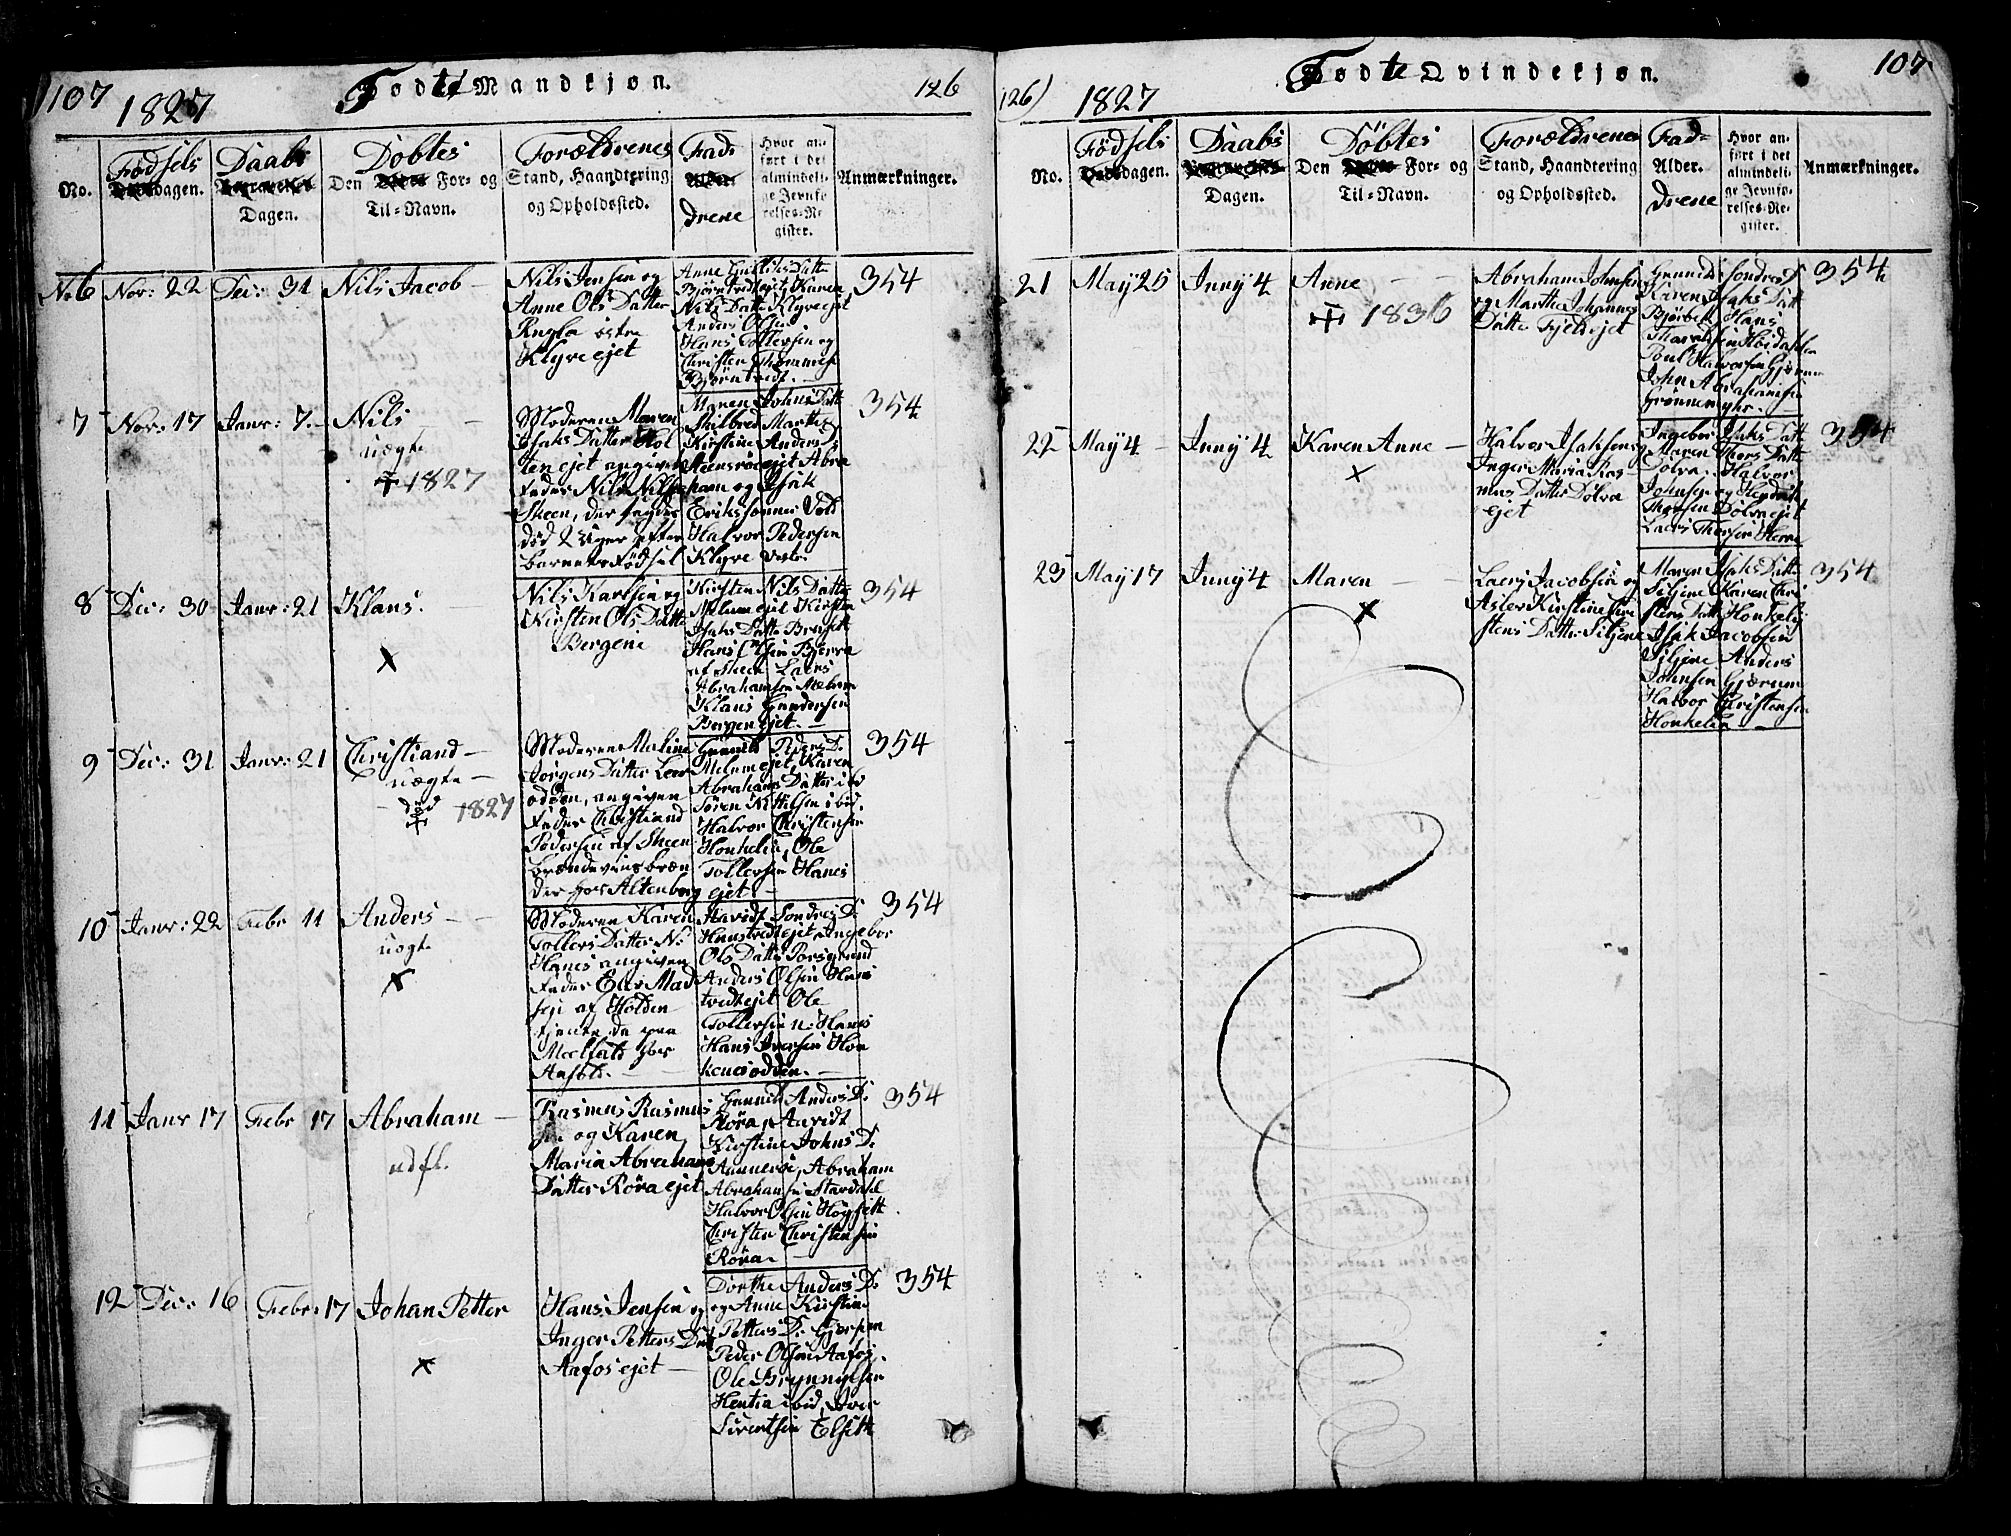 107 1827 Födte Mandkjøn. 126
No.
Födsels dagen.
Daabs Dagen.
Den Döbtes For- og Til-Navn.
Forældrenes Stand, Haandtering og Opholdssted.
Faddrene
Hvor anført i det almindelige Jevnførelses-Register.
Anmærkninger.
No 6 Nov: 22 Dec: 31 Nils Jacob
Nils Jensen og
Anne Ols Datter
østre
Klyve ejet
Anne
Bjørntvedt ejet, Karen
Nils Datt Klyve ejet
Anders Olsen
Hans Tollefsen og
Christen Thommesen
Bjørntvedt.
354
7 Nov: 17 Janr: 7. Nils
uægte
† 1827
Moderen Maren
Isaks Datter Hol
ten ejet angiven
Fader Nils Nilsen
Skeen, der sagdes
död 2 Uger efter
barnets Födsel
Maren Johns Datt
Marthe
Kirstine Anders D
Steensrøe ejet Abra
ham og Isak
Erikssønner Vold
Halvor Pedersen
Klyve vestre
354
8 Dec: 30 Janr: 21 Klaus.
×
Nils Karlsen og
Kirsten Ols Datte
Bergene
Kirsten Nils Datte
Melum ejet Kirsten
Isaks Datte
Hans Olsen Bjerva
af Skeen Laers
Abrahamsen Melum
Klaus Gundersen
Bergen ejet.
354
9 Dec: 31 Janr: 21 Christiand
uægte
död
† 1827
Moderen Maline
Jörgens Datter Leer
odden, angiven
Fader Christiand
Pedersen af Skeen
Brændeviinsbræn
der hos Altenborg
Gunnild Peders D.
Melum ejet, Karen
Abrahams Datter ibd
Sören Kittilsen ibid.
Halvor Christensen
Honkelia, Ole
Tollefsen Hanes
ejet.
354
10 Janr: 22 Febr 11 Anders
uægte
×
Moderen Karen
Tollefs Datter N:
Hanes angiven
Fader Eler Mad
sen af Holden
tjente da paa
Melfald hos
Aasold.
Aavidt Sondres D.
Hanstvedt ejet, Ingebor
Ols Datte Porsgrund
Anders Olsen Hans
tvedt ejet Ole
Tollefsen n: Hanes
Hans Iversen Hon
kenesodden.
354
11 Janr 17 Febr 17 Abraham
udfl.
Rasmus Rasmus
sen og Karen
Maria Abrahams
Datter Röra ejet
Gunnild Anders D:
Röra, Aavidt
Kirstine Johns D.
Aannerøe, Abraham
Abrahamsen Stordahl
Halvor Olsen Höysett
Christen Christensen
Röra.
354
12 Dec: 16 Febr: 17 Johan Petter
×
Hans Jensen og
Inger Petters Datt
Aafos ejet
Dorthe Anders D.
og Anne Kirstine
Petters D. Gjersum
Peder Olsen Aafos.
Ole Brynnylsen
Hentia ibid, Iver
Sivertsen Elsett
354
126) 1827 Födte Qvindekjøn. 107
No.
Födsels dagen.
Daabs Dagen.
Den Döbtes For- og Til-Navn.
Forældrenes Stand, Haandtering og Opholdssted.
Fad-Alder. drene
Hvor anført i det almindelige Jevnførelses-Register.
Anmærkninger.
21 May 25 Juny 4 Anne
† 1836
Abraham Johnsen
og Marthe Johannes
Datte Fjelt ejet
Gunnild Sondres D
Karen Isaks Datt
Bjørbek, Hans
Poul Halvorsen Gjærum
John Abrahamsen
Grønnemyhr.
354
22 May 4 Juny 4 Karen Anne
×
Halvor Isaksen og
Inger Maria Ras
mus Datter Dölva
ejet
Ingebor Isaks Datt
Maren Thors Datt
Dölva. Halvor
Johnsen og Hendrik
Thorsen Dölva ejet
Laers Thorsen Herre
354
23 May 17 Juny 4 Maren
×
Laers Jacobsen og
Asler Kirstine Chri
stens Datte: Siljene
Maren Isaks Datte
Siljene Karen Chri
stens Datt Honkelia
Isak Jacobsen
Siljene Anders
Johnsen Gjærum
Halvor Christensen
Honkelia
354